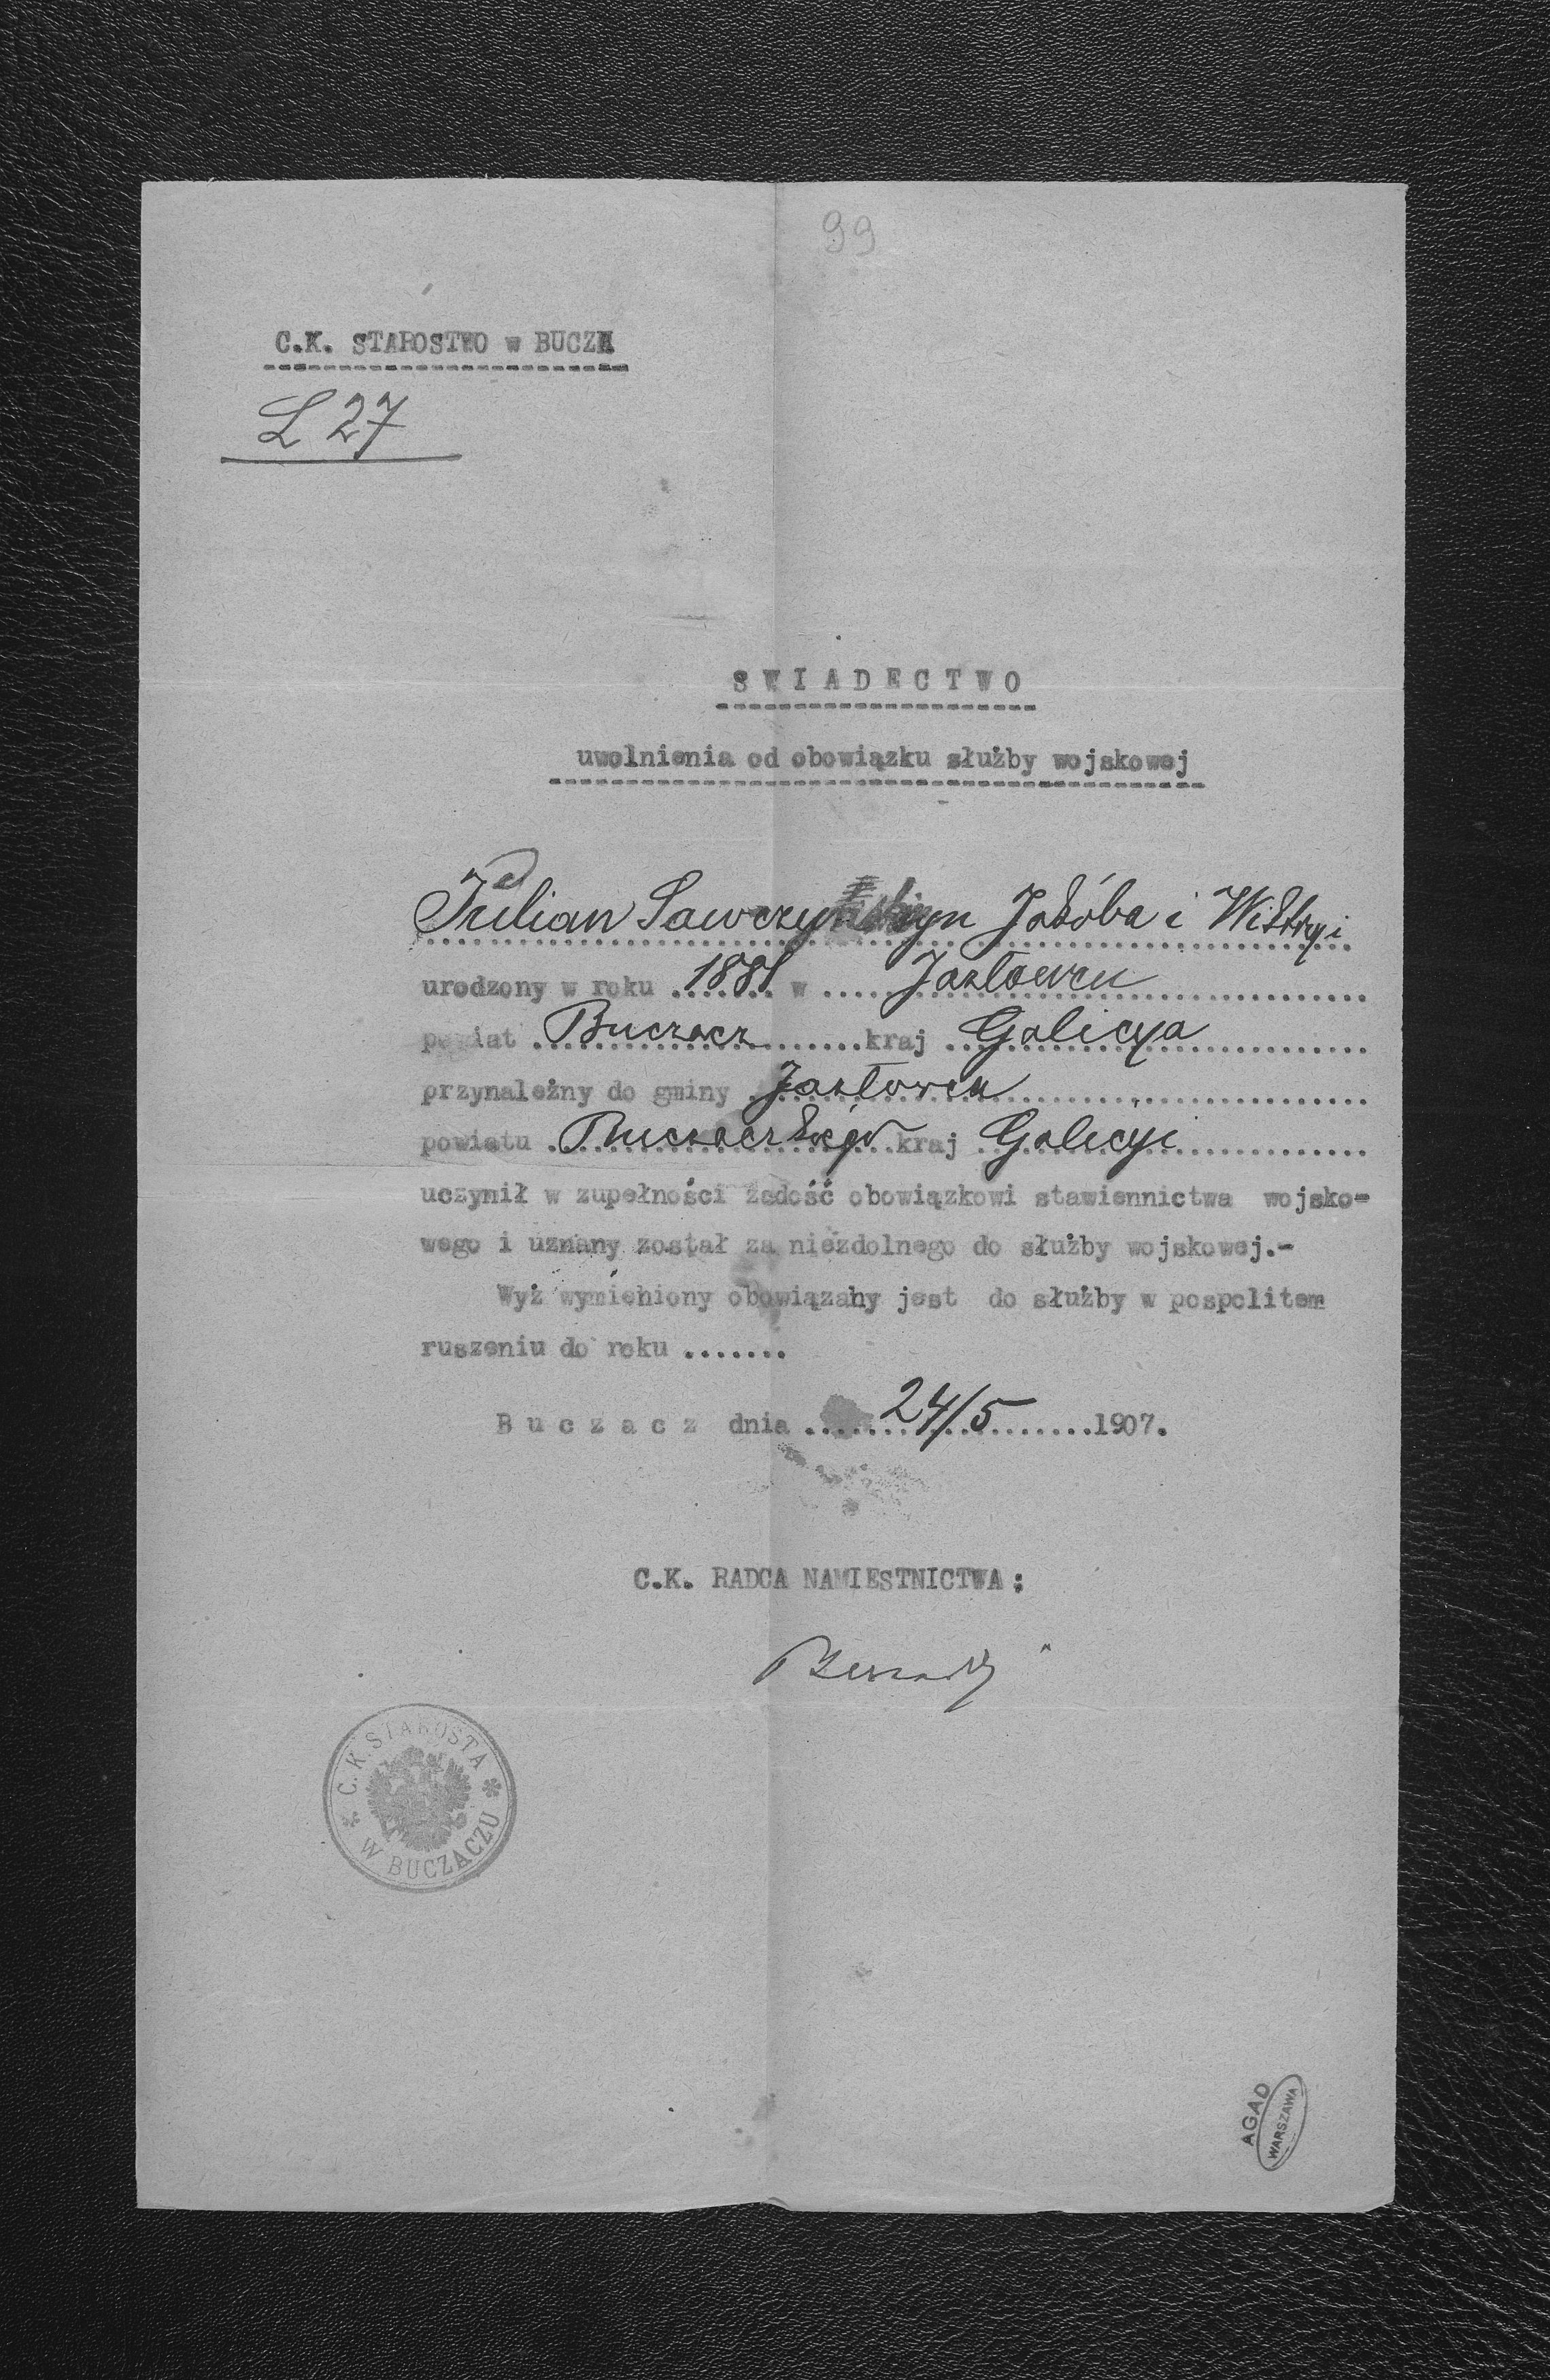 99
C.K. STAROSTWO w BUCZA
L 27
SWIADECTWO
uwolnienia od obowiązku służby wojskowej
Julian syn Jakóba i Wiktoryi
urodzony w roku 1881 w Jazłowcu
powiat Buczacz kraj Galicya
przynależny do gminy Jazłowca
powiatu Buczackiego kraj Galicyi
uczynił w zupełności żadość obowiązkowi stawiennictwa wojsko=
wego i uznany został za niezdolnego do służby wojskowej.-
Wyż wymieniony obowiązany jest do służby w pospolitem
ruszeniu do roku .......
Buczacz dnia 24/5 1907.
C.K. RADCA NAMIESTNICTWA:
C.K. STAROSTA
W BUCZACZU
AGAD
WARSZAWA